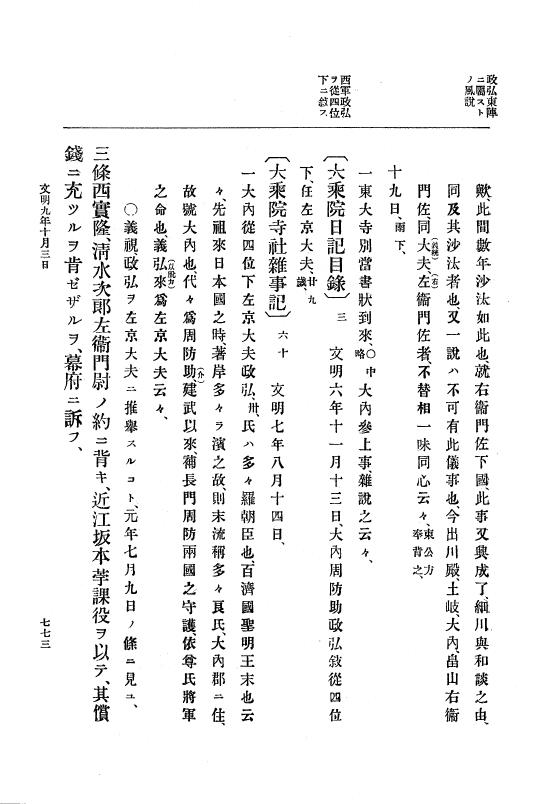 政弘東陣
ニ屬スト
ノ風說
西軍政弘
ヲ從四位
下ニ敍ス
歟、此間數年沙汰如此也、就右衞門佐下國、此事又興成了、細川與和談之由、
同及其沙汰者也、又一說ハ不可有此儀事也、今出川殿、土岐、大內、畠山右衞
門佐、同大夫、左衞門佐者、不替相一味同心云々、東公方奉背之、
(義統)
(右)
十九日、雨下、
一東大寺別當書狀到來、○中略大內參上事雜說之云々、
〔大乘院日記目錄〕三 文明六年十一月十三日、大內周防助政弘敍從四位
下、任左京大夫、廿九歲、
〔大乘院寺社雜事記〕六十 文明七年八月十四日、
一大內從四位下左京大夫政弘、卅、氏ハ多々羅朝臣也、百濟國聖明王末也云
々、先祖來日本國之時、著岸多々ラ濱之故、則末流稱多々良氏、大內郡ニ住、
故號大內也、代々爲周防助、建武以來、補長門周防兩國之守護、依尊氏將軍
(介)
之命也、義弘來爲左京大夫云々、
(以脫カ)
○義視政弘ヲ左京大夫ニ推擧スルコト、元年七月九日ノ條ニ見ユ、
三條西實隆、淸水次郎左衞門尉ノ約ニ背キ、近江坂本苧課役ヲ以テ、其償
錢ニ充ツルヲ肯ゼザルヲ、幕府ニ訴フ、
文明九年十月三日
七七三